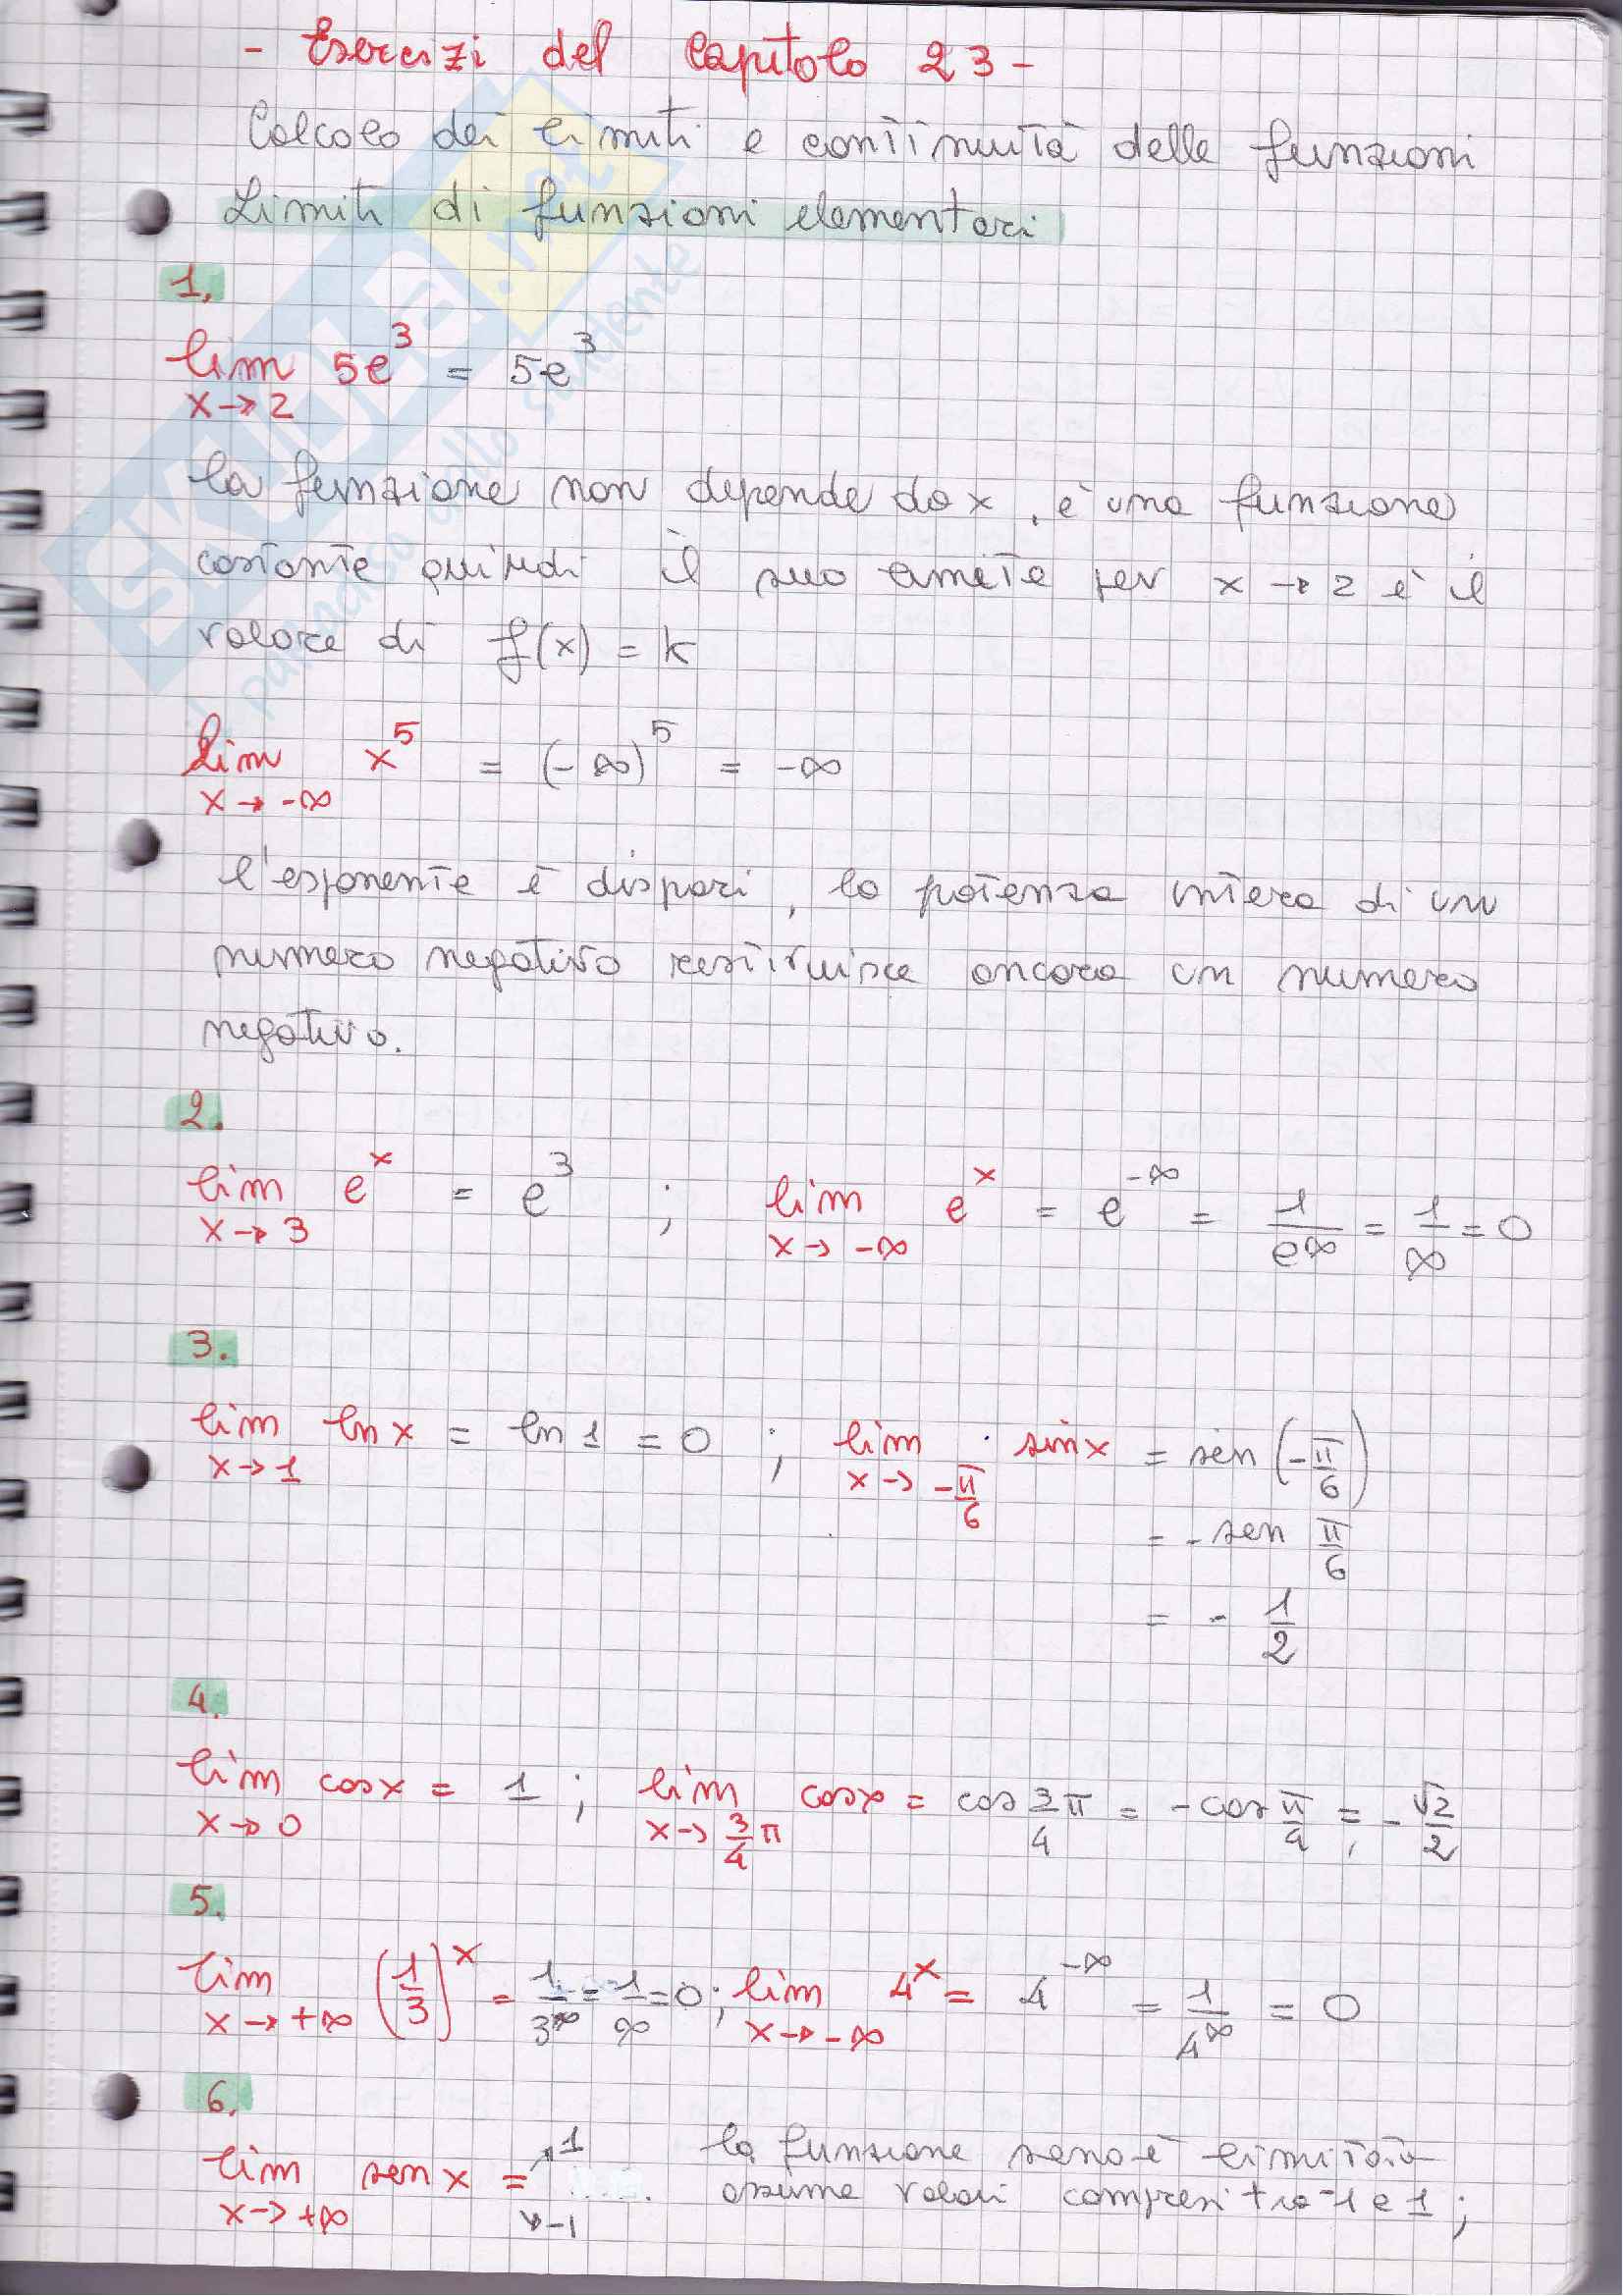 - Esercizi del Capitolo 23 -
Calcolo dei limiti e continuità delle funzioni
Limiti di funzioni elementari
1.
lim 5e³ = 5e³
x→2
la funzione non dipende da x, è una funzione
costante quindi il suo limite per x → 2 è il
valore di f(x) = k
lim x⁵ = (-∞)⁵ = -∞
x→-∞
l'esponente è dispari, la potenza intera di un
numero negativo restituisce ancora un numero
negativo.
2.
lim eˣ = e³ ; lim eˣ = e^-∞ = 1/e^∞ = 1/∞ = 0
x→3 x→-∞
3.
lim ln x = ln 1 = 0 ; lim sin x = sen (-π/6)
x→1 x→ -π/6
= - sen π/6
= - 1/2
4.
lim cos x = 1 ; lim cos x = cos 3/4 π = - cos π/4 = - √2/2
x→0 x→ 3/4 π
5.
lim (1/3)ˣ = 1/3^∞ = 1/∞ = 0 ; lim 4ˣ = 4^-∞ = 1/4^∞ = 0
x→+∞ x→-∞
6.
lim sen x = ↗1 ↘-1 la funzione seno è limitata
x→+∞ assume valori compresi tra -1 e 1 ;
SKUOLA.net
paradiso dello studente